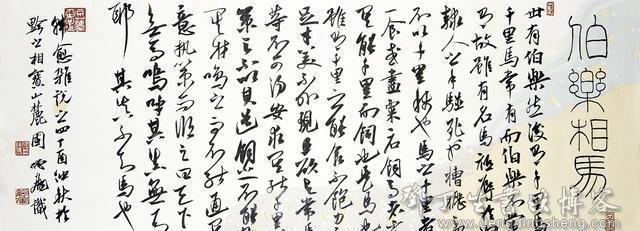 伯樂相馬
世有伯樂然後有千里
千里馬常有而伯樂不常
有故雖有名馬祇辱於
隸人之手駢死於槽櫪
不以千里稱也馬之千里者
一食或盡粟一石飼馬者
其能千里而飼也是馬也
雖有千里之能食不飽力
足才美不外見且欲與常馬
等不可得安求其能千里
策之不以其道飼之不能
其材鳴之不能通其
意執策而臨之曰天下
無馬嗚呼其真無馬
耶其真不知馬也
韓愈雜說之四丁酉仲秋於
黔之相寶山麓國
識
博客
www.dengdingsheng.com